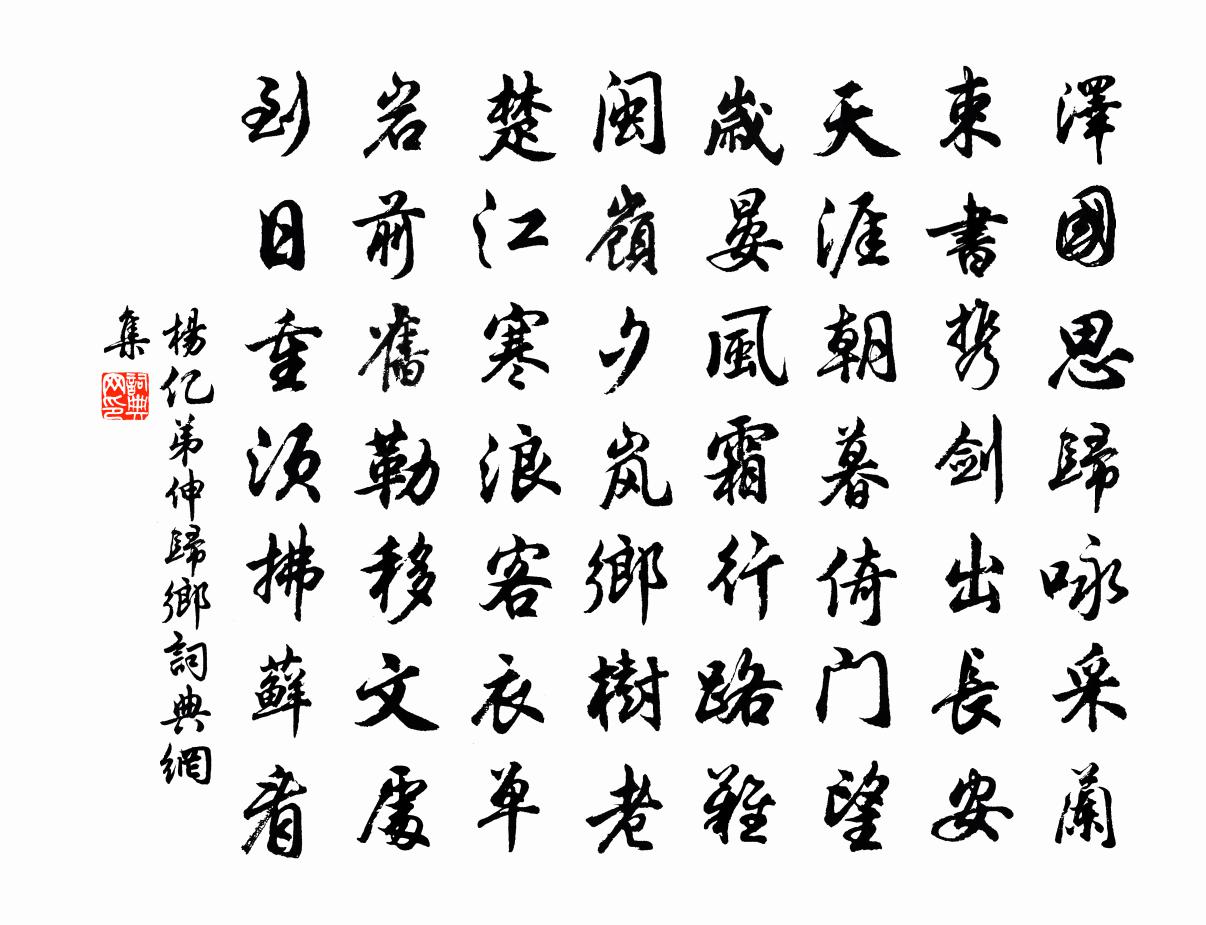 澤國思歸咏采蘭
束書携剑出長安
天涯朝暮倚门望
歲晏風霜行路難
闽嶺夕岚鄉樹老
楚江寒浪客衣单
岩前舊勒移文處
到日重须拂蘚看
楊亿弟伸歸鄉詞典網
集
詞典
网印